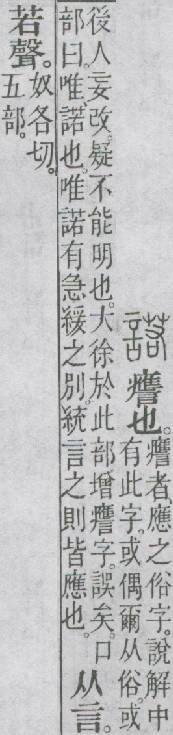 諾 譍也。
譍者、應之俗字。說解中
有此字。或偶爾从俗。或
後人妄改。疑不能明也。大徐於此部增譍字。誤矣。口
部曰。唯、諾也。唯諾有急緩之別。統言之則皆應也。
从言。
若聲。
奴各切。
五部。